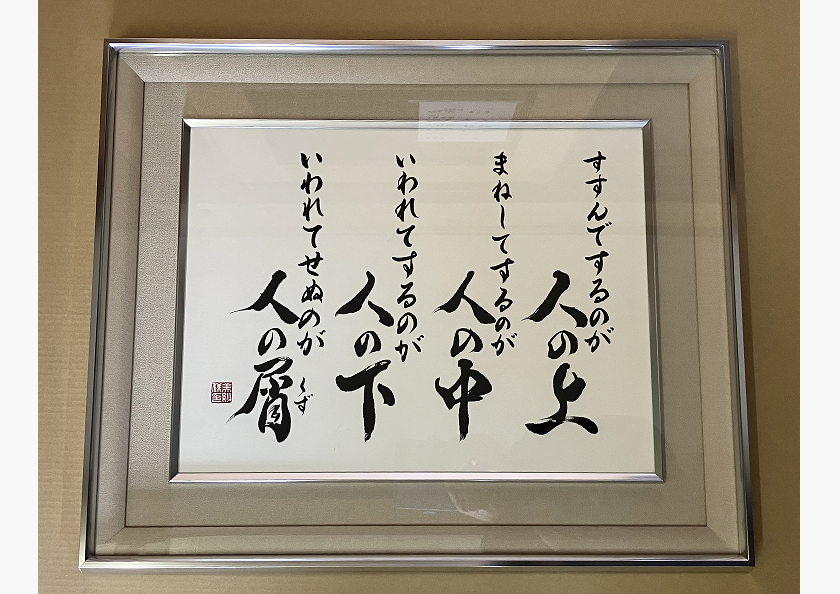 すすんでするのが
人の上
まねしてするのが
人の中
いわれてするのが
人の下
いわれてせぬのが
人の屑
くず